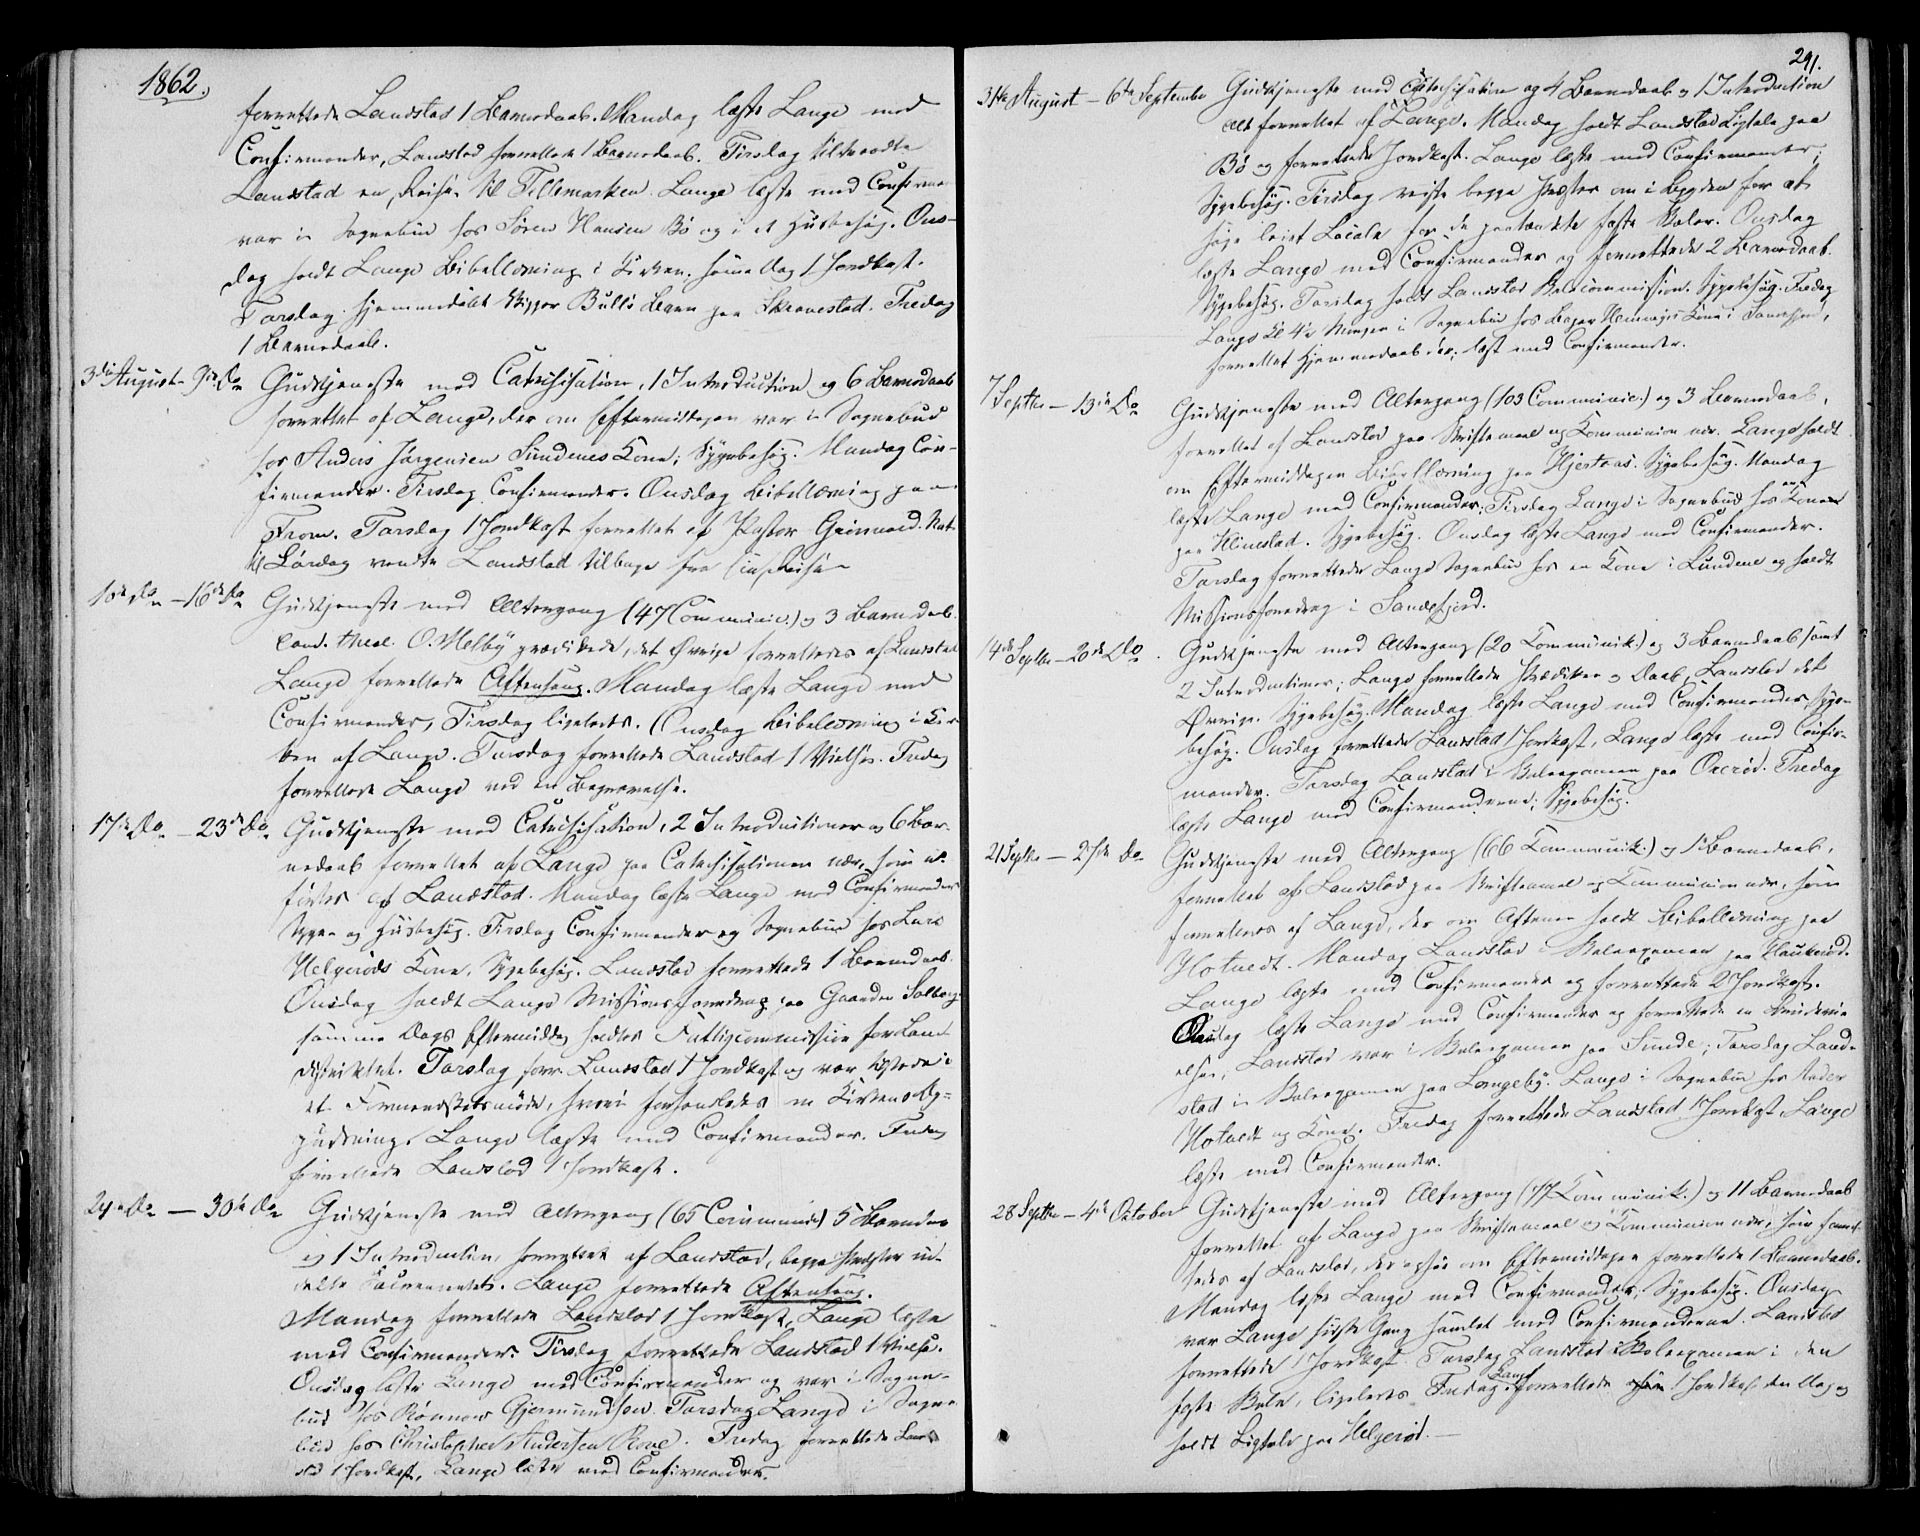 1862.
forrettede Landstad 1 Barnedaab. Mandag læste Lange med
Confirmander, Landstad forrettet 1 Barnedaab. Tirsdag tiltraadte
Landstad en Reise til Tellemarken. Lange læste med Confirm
var i Sognebud hos Søren Hansen Bø og i et Husbesøg. Ons-
dag holdt Lange Bibellæsning i Kirken, samme Dag 1 Jordkast.
Torsdag hjemmedøbt Skipper Bulls Barn paa Skravestad. Fredag
1 Barnedaab.
3die August - 9de Do
Gudstjeneste med Catechisation, 1 Introduction og 6 Barnedaab
forrettet af Lange, der om Eftermiddagen var i Sognebud
hos Anders Jørgensen Sundenes Kone; Sygebesøg. Mandag Con-
firmander. Tirsdag Confirmander. Onsdag Bibellæsning paa
From. Torsdag 1 Jordkast forrettet af Pastor Grinvold. Nat
til Lørdag vendte Landstad tilbage fra sin Reise
10de Do - 16de Do
Gudstjeneste med Altergang (47 Communic.) og 3 Barnedaab.
Cand. theol. O. Melby prædikede, det Øvrige forrettedes af Landstad
Lange forrettede Aftensang. Mandag læste Lange med
Confirmander, Tirsdag ligeledes. Onsdag Bibellæsning i Kir-
ken af Lange. Torsdag forrettede Landstad 1 Vielse. Fredag
forrettede Lange ved en Begravelse.
17de Do - 23de Do
Gudstjeneste med Catechisation, 2 Introductioner og 6 Bar-
nedaab forrettet af Lange paa Catechisationen nær, som ud-
førtes af Landstad. Mandag læste Lange med Confirmander
Syge- og Husbesøg. Tirsdag Confirmander og Sognebud hos Lars
Helgerøds Kone, Sygebesøg. Landstad forrettede 1 Barnedaab.
Onsdag holdt Lange Missionsforedrag paa Gaarden Solberg
samme Dags Eftermiddag holdtes Fattigcommission for Land
distriktet. Torsdag forr. Landstad 1 Jordkast og var tilstede i
et Formandskabsmøde, hvori forhandledes om Kirkens Op-
pudsning. Lange læste med Confirmander. Fredag
forrettede Landstad 1 Jordkast.
24de Do - 30te Do
Gudstjeneste med Altergang (65 Communic) 5 Barnedaab
og 1 Introduction, forrettet af Landstad, begge Præster ud-
delte Sacramentet. Lange forrettede Aftensang.
Mandag forrettede Landstad 1 Jordkast, Lange læste
med Confirmander. Tirsdag forrettede Landstad 1 Vielse.
Onsdag læste Lange med Confirmander og var i Sogne-
bud hos Rønnow Gjermundsen. Torsdag Lange i Sogne
bud hos Christopher Andersen Roue. Fredag forrettede Land
stad 1 Jordkast, Lange læste med Confirmander.
291.
31te August - 6te September
Gudstjeneste med Catechisation og 4 Barnedaab og 1 Introduction
Alt forrettet af Lange. Mandag holdt Landstad Ligtale paa
Bø og forrettede Jordkast. Lange læste med Confirmander;
Sygebesøg. Tirsdag reiste begge Præster om i Bygden for at
søge leiet Locale for de paatænkte faste Skoler. Onsdag
læste Lange med Confirmander og forrettede 2 Barnedaab.
Sygebesøg. Torsdag holdt Landstad Skolecommission. Sygebesøg. Fredag
Lange Kl 4½ Morgen i Sognebud hos Bager Hennings Kone i Sandefjord,
forrettet Hjemmedaab der; læst med Confirmander.
7 Septbr - 13de Do
Gudstjeneste med Altergang (103 Communic.) og 3 Barnedaab,
forrettet af Landstad paa Skriftemaal og Kommunion nær. Lange holdt
om Eftermiddagen Bibellæsning paa Hjertaas. Sygebesøg. Mandag
læste Lange med Confirmander; Tirsdag Lange i Sognebud hos Konen
paa Hinestad. Sygebesøg. Onsdag læste Lange med Confirmander.
Torsdag forrettede Lange Sognebud hos en Kone i Lundene og holdt
Missionsforedrag i Sandefjord.
14de Septbr - 20de Do
Gudstjeneste med Altergang (20 Kommunik.) og 3 Barnedaab samt
2 Introductioner; Lange forrettede Prædiken og Daab, Landstad det
Øvrige. Sygebesøg. Mandag læste Lange med Confirmander, Syge-
besøg. Onsdag forrettede Landstad 1 Jordkast, Lange læste med Confir-
mander. Torsdag Landstad i Skoleexamen paa Orerød. Fredag
læste Lange med Confirmanderne; Sygebesøg.
21 Septbr - 27de Do
Gudstjeneste med Altergang (66 Kommunik.) og 1 Barnedaab,
forrettet af Landstad paa Skriftemaal og Kommunion nær, som
forrettedes af Lange, der om Aftenen holdt Bibellæsning paa
Hotvedt. Mandag Landstad i Skoleexamen paa Haukerød.
Lange læste med Confirmander og forrettede 2 Jordkast.
Onsdag læste Lange med Confirmander og forrettede en Brudevi-
else; Landstad var i Skoleexamen paa Sunde; Torsdag Land-
stad i Skoleexamen paa Langeby. Lange i Sognebud hos Anders
Hotvedt og Kone. Fredag forrettede Landstad 1 Jordkast, Lange
læste med Confirmander.
28 Septbr - 4de Oktober
Gudstjeneste med Altergang (77 Kommunik.) og 11 Barnedaab
forrettet af Lange paa Skriftemaal og Kommunion nær, som forret-
tedes af Landstad, der ogsaa om Eftermiddagen forrettede 1 Barnedaab.
Mandag læste Lange med Confirmander, Sygebesøg. Onsdag
var Lange sidste Gang samlet med Confirmanderne. Landstad
forrettede 1 Jordkast. Torsdag Landstad i Skoleexamen i den
faste Skole, ligeledes Fredag. Lange forrettede 1 Jordkast den Dag og
holdt Ligtale paa Helgerød.